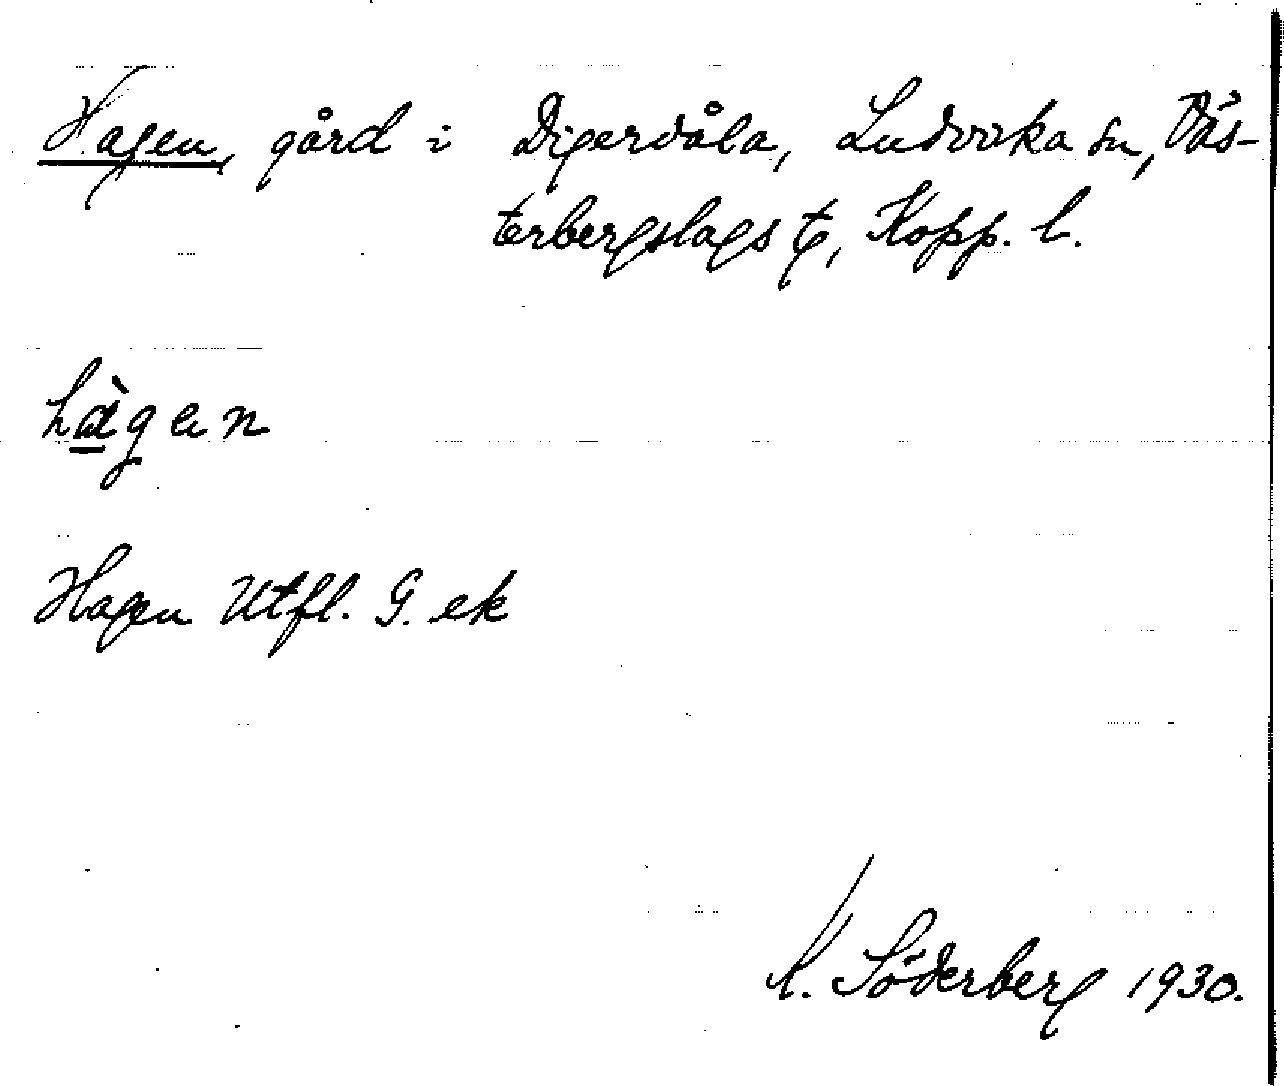 Hagen, gård i Digervåla, Ludvika sn, Väs-
terbergslags tg, Kopp. l.
hàgen
Hagen Utfl. G. ek
K. Söderberg 1930.